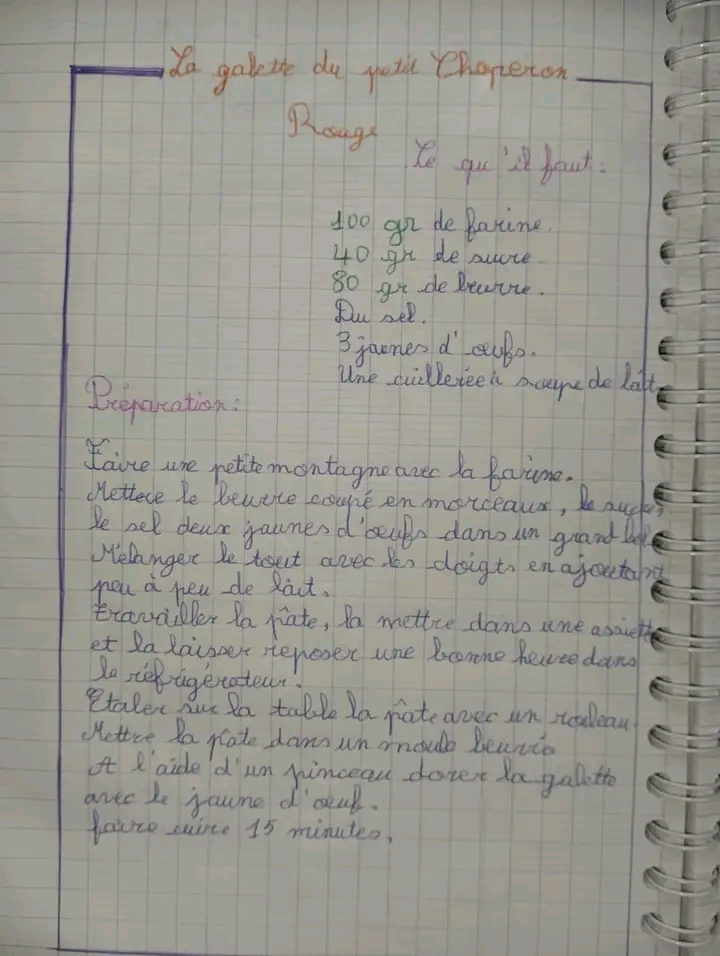 La galette du petit Chaperon
Rouge
Ce qu'il faut :
100 gr de farine.
40 gr de sucre
80 gr de beurre.
Du sel.
3 jaunes d'œufs.
Une cuillerée à soupe de lait.
Préparation :
Faire une petite montagne avec la farine.
Mettece le beurre coupé en morceaux, le sucre,
le sel deux jaunes d'œufs dans un grand bol
Mélanger le tout avec les doigts en ajoutant
peu à peu de lait.
travailler la pâte, la mettre dans une assiette
et la laisser reposer une bonne heure dans
le réfrigérateur.
Etaler sur la table la pâte avec un rouleau
Mettre la pâte dans un moule beurré
A l'aide d'un pinceau dorer la galette
avec le jaune d'œuf.
faire cuire 15 minutes.